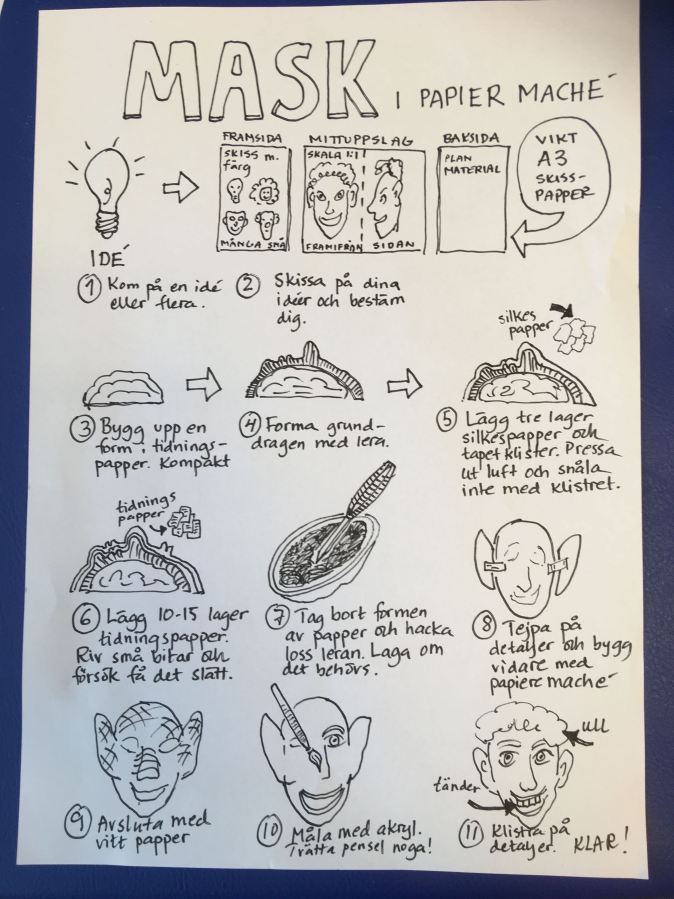 MASK I PAPIER MACHÉ
FRAMSIDA
SKISS M.
färg
MÅNGA SMÅ
MITTUPPSLAG
SKALA 1:1
FRAMIFRÅN
SIDAN
BAKSIDA
PLAN
MATERIAL
VIKT
A3
SKISS-
PAPPER
IDÉ
1 Kom på en idé
eller flera.
2 Skissa på dina
idéer och bestäm
dig.
3 Bygg upp en
form i tidnings-
papper. Kompakt
4 Forma grund-
dragen med lera.
silkes
papper
5 Lägg tre lager
silkespapper och
tapetklister. Pressa
ut luft och snåla
inte med klistret.
tidnings
papper
6 Lägg 10-15 lager
tidningspapper.
Riv små bitar och
försök få det slätt.
7 Tag bort formen
av papper och hacka
loss leran. Laga om
det behövs.
8 Tejpa på
detaljer och bygg
vidare med
papiere maché
9 Avsluta med
vitt papper
10 Måla med akryl.
Tvätta pensel noga!
ull
tänder
11 Klistra på
detaljer. KLAR!